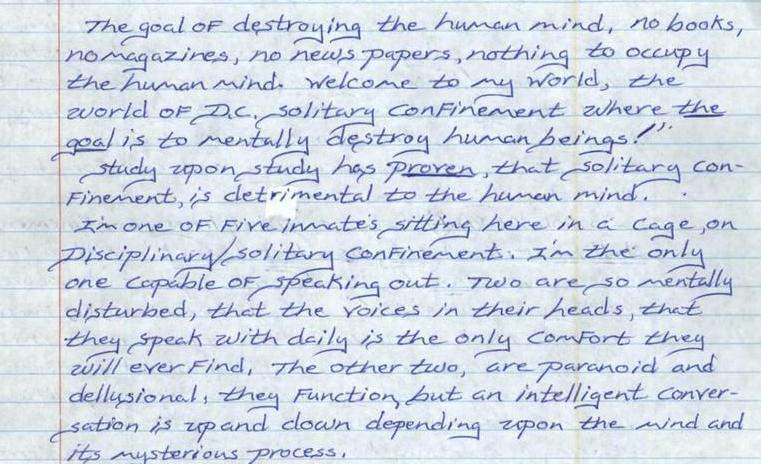 The goal of destroying the human mind, no books,
no magazines, no news papers, nothing to occupy
the human mind. Welcome to my world, the
world of D.C. solitary confinement where the
goal is to mentally destroy human beings!"
study upon study has proven, that solitary con-
finement, is detrimental to the human mind.
I'm one of five inmate's sitting here in a cage, on
Disciplinary/solitary confinement. I'm the only
one capable of speaking out. Two are so mentally
disturbed, that the voices in their heads, that
they speak with daily is the only comfort they
will ever find, The other two, are paranoid and
dellusional, they function, but an intelligent conver-
sation is up and down depending upon the mind and
its mysterious process.